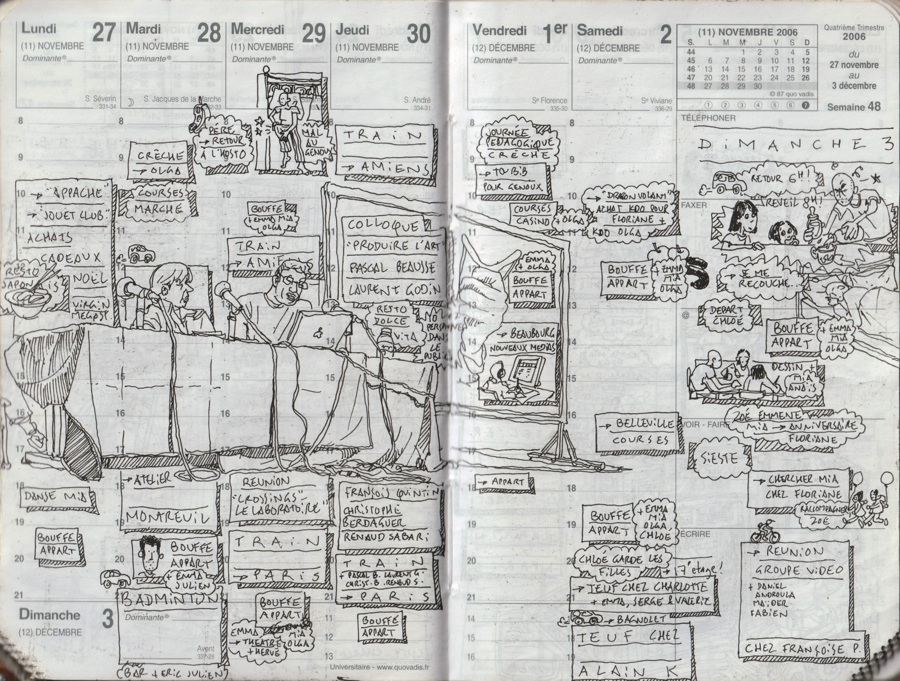 Lundi 27
(11) NOVEMBRE
Dominante
S. Séverin
331-34
→ "APPACHE"
→ "JOUET CLUB"
ACHATS
CADEAUX
NOËL
VIRGIN
MEGAST
RESTO
JAPONAIS
DANSE MIA
BOUFFE
APPART
Dimanche 3
(12) DÉCEMBRE
Mardi 28
(11) NOVEMBRE
Dominante
S. Jacques de la Marche
PERE
→ RETOUR
A L'HOSTO
CRÈCHE
→ OLGA
COURSES
MARCHÉ
→ ATELIER
MONTREUIL
BOUFFE
APPART
+ EMMA
JULIEN
BADMINTON
Dominante
Avent
337-28
(BAR + ERIC JULIEN)
Mercredi 29
(11) NOVEMBRE
Dominante
MAL
AU
GENOU
BOUFFE
+ EMMA MIA
OLGA
TRAIN
→ AMI
REUNION
"CROSSINGS"
LE LABORATOIRE
TRAIN
→ PARIS
BOUFFE
APPART
EMMA
→ THEATRE
+ HERVÉ
MIA
OLGA
Jeudi 30
(11) NOVEMBRE
Dominante
S. André
334-31
TRAIN
→ AMIENS
COLLOQUE
"PRODUIRE L'ART"
PASCAL BEAUSSE
LAURENT GODIN
RESTO
DOLCE
VITA
FRANÇOIS QUINTIN
CHRISTOPHE
BERDAGUER
RENAUD SABARI
TRAIN
→ PARIS
BOUFFE
APPART
Universitaire - www.quovadis.fr
Vendredi 1er
(12) DÉCEMBRE
Dominante
Ste Florence
335-30
JOURNÉE
PEDAGOGIQUE
CRÈCHE
→ TOUBIB
POUR GENOUX
COURSES
CASINO
+ OLGA
EMMA
+ OLGA
BOUFFE
APPART
→ BEAUBOURG
NOUVEAUX MEDIAS
→ APPART
Samedi 2
(12) DÉCEMBRE
Dominante
Ste Viviane
336-29
"DRAGON VOLANT"
ACHAT KDO POUR
FLORIANE +
KDO OLGA
BOUFFE
APPART
+ EMMA
MIA
OLGA
→ BELLEVILLE
COURSES
BOUFFE
APPART
+ EMMA
MIA
OLGA
CHLOE
CHLOE GARDE LES
FILLES
+ 17e ETAGE!
→ TEUF CHEZ CHARLOTTE
+ EMMA, SERGE & VALERIE
→ BAGNOLET
TEUF CHEZ
ALAIN K
(11) NOVEMBRE 2006
S. L M M J V S D
44 1 2 3 4 5
45 6 7 8 9 10 11 12
46 13 14 15 16 17 18 19
47 20 21 22 23 24 25 26
48 27 28 29 30
© 87 quo vadis
1 2 3 4 5 6 7
Quatrième Trimestre
2006
du
27 novembre
au
3 décembre
Semaine 48
TÉLÉPHONER
DIMANCHE 3
RETOUR 6H!
REVEIL 8H!
FAXER
→ JE ME
RECOUCHE
→ DEPART
CHLOÉ
BOUFFE
APPART
+ EMMA
MIA
OLGA
DESSIN
+ MIA
ANAÏS
ZOÉ EMMENE
MIA → ANNIVERSAIRE
FLORIANE
VOIR - FAIRE
SIESTE
→ CHERCHER MIA
CHEZ FLORIANE
RACCOMPAGNER
ZOÉ
ÉCRIRE
→ REUNION
GROUPE VIDEO
+ DANIEL
ANDROULA
MAÏDER
FABIEN
CHEZ FRANÇOISE P.